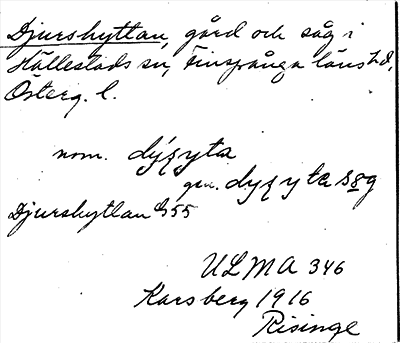 Djurshyttan, gård och såg i
Hällestads sn, Finspånga läns hd,
Österg. l.
nom. dýʂyta
gen. dyʂyta såg
Djurshyttan G 55
ULMA 346
Karsberg 1916
Risinge